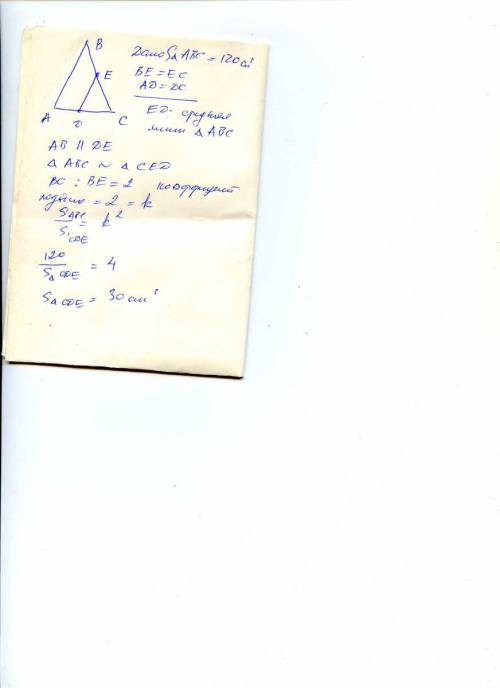 B
E
A
D
C
Дано S△ABC = 120 см²
BE = EC
AD = DC
ED - средняя
линия △ABC
AB || DE
△ ABC ~ △ CED
BC : BE = 2 коэффициент
подобия = 2 = k
S ABC / S CDE = k²
120 / S△ CDE = 4
S△ CDE = 30 см²